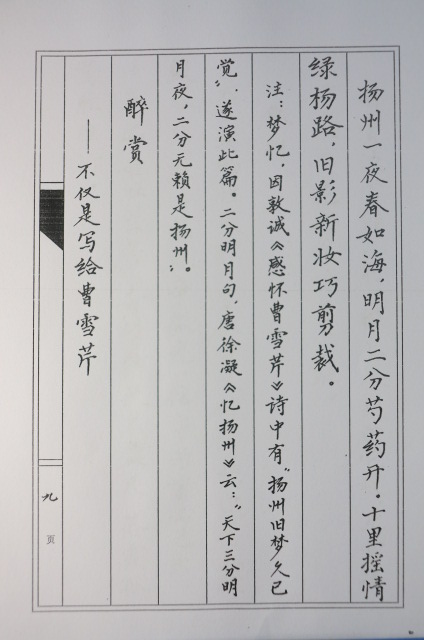 扬州一夜春如海，明月二分芍药开。十里摇情
绿杨路，旧影新妆巧剪裁。
注：梦忆，因敦诚《感怀曹雪芹》诗中有“扬州旧梦久已
觉”，遂演此篇。二分明月句，唐徐凝《忆扬州》云：“天下三分明
月夜，二分无赖是扬州”。
醉赏
——不仅是写给曹雪芹
九页